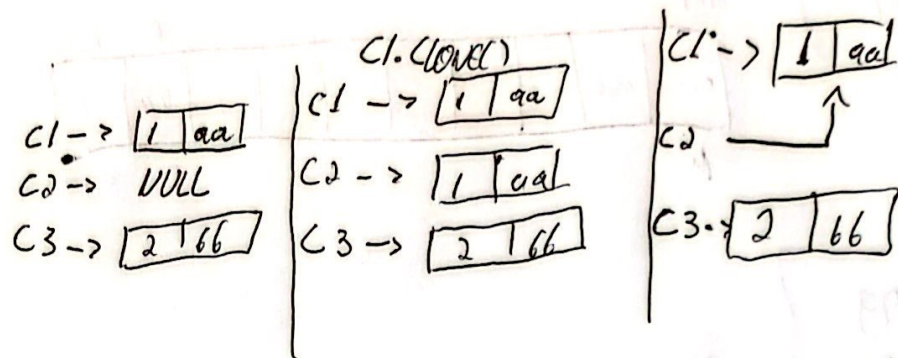 C1 -> 1 aa
C2 -> NULL
C3 -> 2 66
C1.CLONE()
C1 -> 1 aa
C2 -> 1 aa
C3 -> 2 66
C1 -> 1 aa
C2
C3 -> 2 66